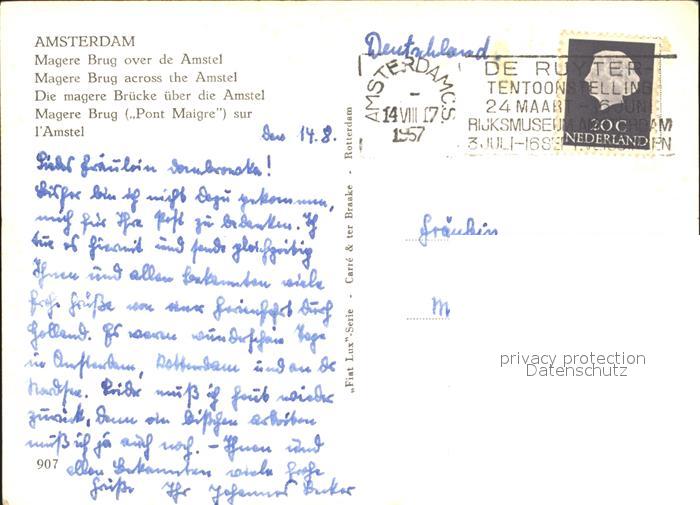 AMSTERDAM
Magere Brug over de Amstel
Magere Brug across the Amstel
Die magere Brücke über die Amstel
Magere Brug („Pont Maigre") sur
l'Amstel
den 14.8.
Liebes Fräulein Dombrowska!
Bisher bin ich nicht dazu gekommen,
mich für Ihre Post zu bedanken. Ich
tue es hiermit und sende gleichzeitig
Ihnen und allen Bekannten viele
frohe Grüße von einer Ferienfahrt durch
Holland. Es waren wunderschöne Tage
in Amsterdam, Rotterdam und an der
Nordsee. Leider muß ich heute wieder
zurück, denn ein bißchen arbeiten
muß ich ja auch noch. – Ihnen und
allen Bekannten viele frohe
Grüße Ihr Johannes Becker
907
„Fiat Lux"-Serie - Carré & ter Braake - Rotterdam
Deutschland.
AMSTERDAM C.S.
14 VIII 17
1957
DE RUYTER-
TENTOONSTELLING
24 MAART - 16 JUNI
RIJKSMUSEUM AMSTERDAM
3 JULI-1 SEPT
20 C
NEDERLAND
Fräulein
M
privacy protection
Datenschutz